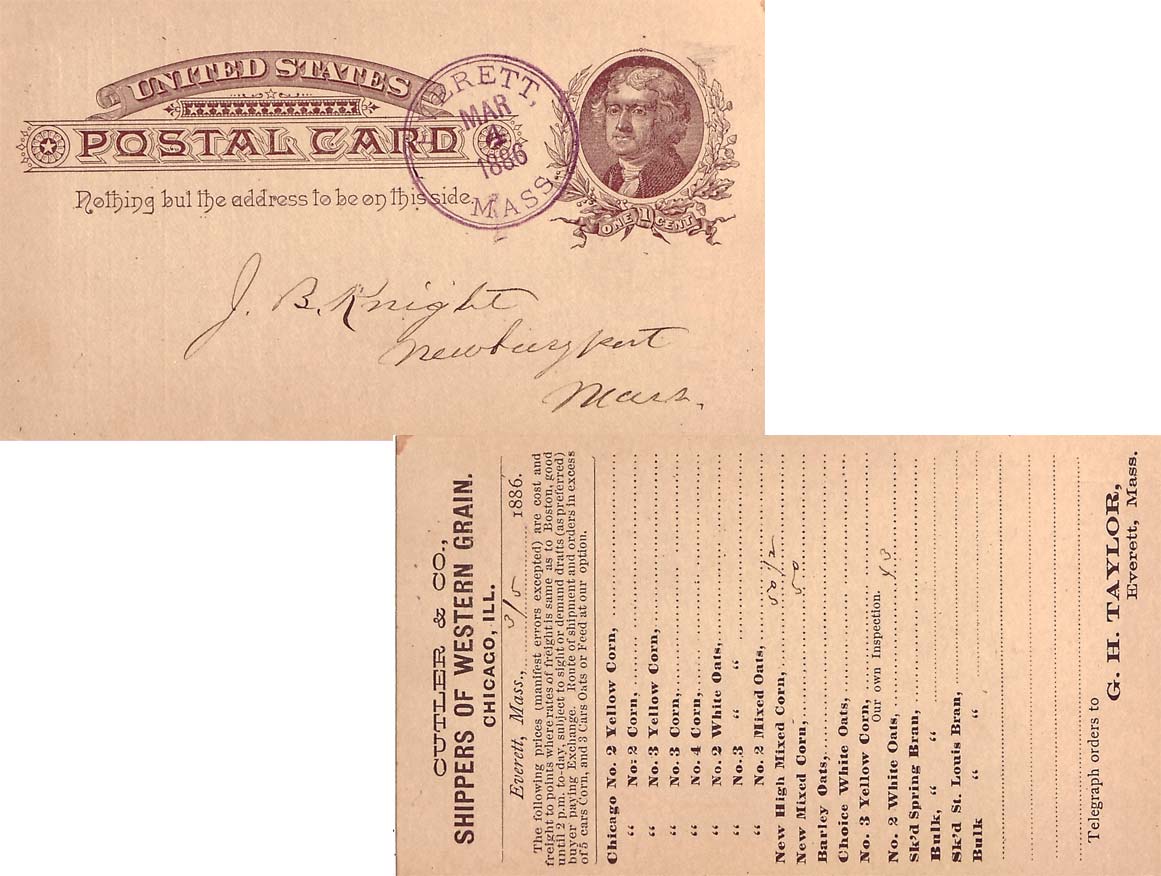 UNITED STATES
POSTAL CARD
Nothing but the address to be on this side.
EVERETT,
MAR
4
1886
MASS
ONE 1 CENT
J. B. Knight
Newburyport
Mass.
CUTLER & CO.,
SHIPPERS OF WESTERN GRAIN.
CHICAGO, ILL.
Everett, Mass., 3/5 1886.
The following prices (manifest errors excepted) are cost and
freight to points where rates of freight is same as to Boston, good
until 2 p.m. to-day, subject to sight or demand drafts (as preferred)
buyer paying Exchange. Route of shipment and orders in excess
of 5 cars Corn, and 3 Cars Oats or Feed at our option.
Chicago No. 2 Yellow Corn,
“ No: 2 Corn,
“ No. 3 Yellow Corn,
“ No. 3 Corn,
“ No. 4 Corn,
“ No. 2 White Oats,
“ No. 3 “ “
“ No. 2 Mixed Oats,
New High Mixed Corn, 50 1/2
New Mixed Corn, 50
Barley Oats,
Choice White Oats,
No. 3 Yellow Corn,
Our own Inspection.
No. 2 White Oats, 43
Sk'd Spring Bran,
Bulk, “ “
Sk'd St. Louis Bran,
Bulk “ “
Telegraph orders to
G. H. TAYLOR,
Everett, Mass.